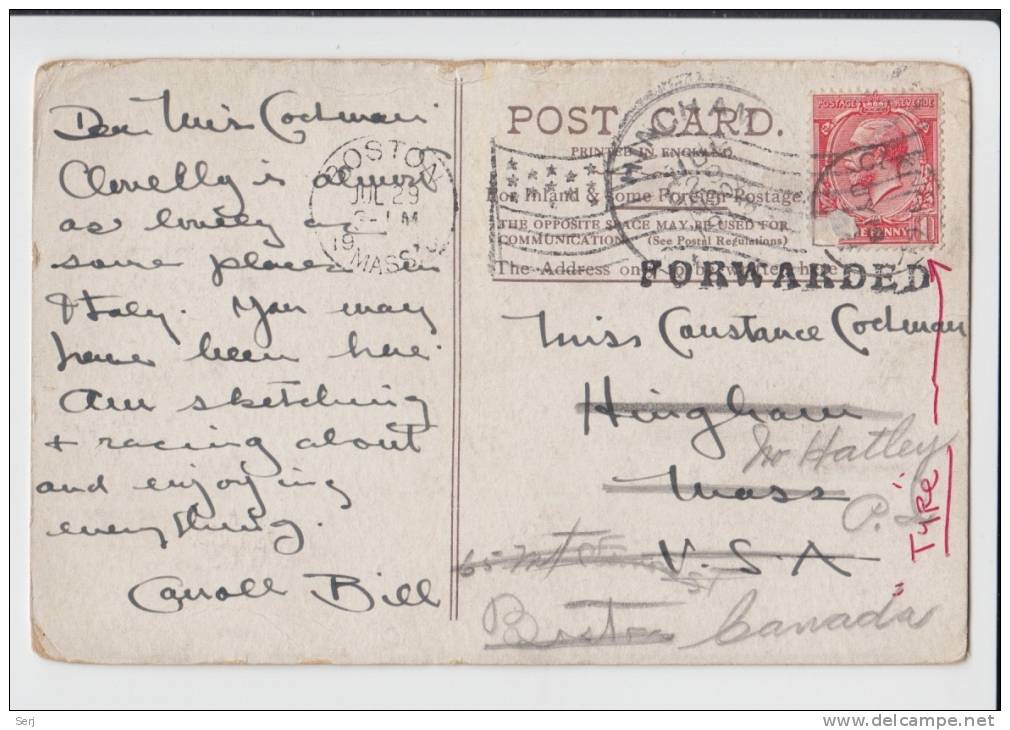 Dear Miss Codman
Clovelly is almost
as lovely as
some places in
Italy. You may
have been here.
Am sketching
& racing about
and enjoying
everything.
Carroll Bill
BOSTON
JUL 29
MASS.
POST CARD.
PRINTED IN ENGLAND
For Inland & some Foreign Postage.
THE OPPOSITE SPACE MAY BE USED FOR
COMMUNICATION (See Postal Regulations)
The Address only to be written here
HINGHAM
POSTAGE REVENUE
ONE PENNY
FORWARDED
Miss Constance Codman
Hingham
Mass
U.S.A
No Hatley
P.Q.
65 Mt
ST
Boston
Canada
TYRE
Serj
delcampe.net